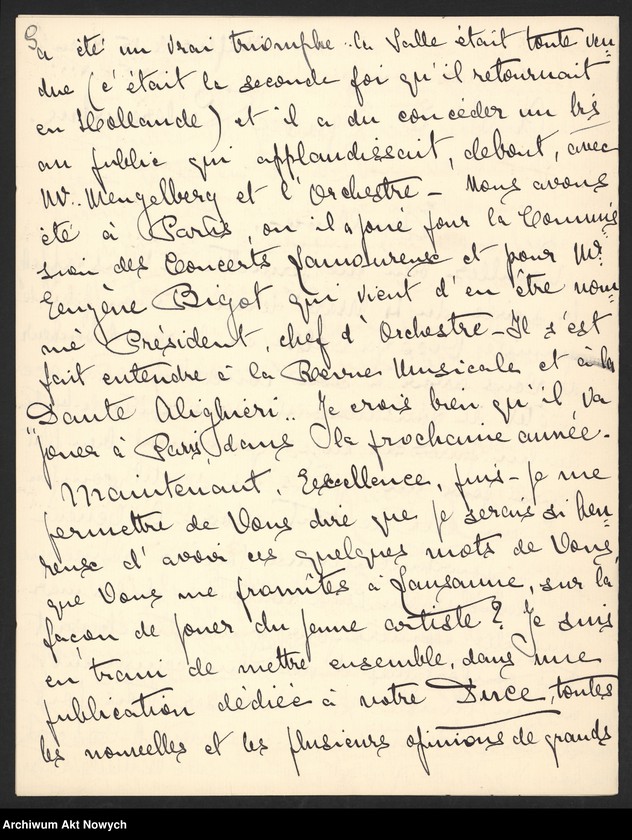 Ça été un vrai triomphe. La Salle était toute ven=
due (c'était la seconde foi qu'il retournait
en Hollande) et il a du concéder un bis
au public qui applaudissait, debout, avec
Mr. Mengelberg et l'Orchestre — Nous avons
été à Paris, ou il a joué pour la Commis=
sion des Concerts Lamoureux et pour Mr.
Eugène Bigot qui vient d'en être nom=
mé Président, chef d'Orchestre — Il s'est
fait entendre à la Revues Musicales et à la
"Dante Alighieri.. Je crois bien qu'il va
jouer à Paris, dans la prochaine année.
Maintenant, Excellence, puis-je me
permettre de Vous dire que je serais si heu=
reuse d'avoir ces quelques mots de Vous,
que Vous me promîtes à Lausanne, sur la
façon de jouer du jeune artiste? Je suis
en train de mettre ensemble, dans une
publication dédiée à notre Duce, toutes
les nouvelles et les plusieurs opinions de grands
Archiwum Akt Nowych